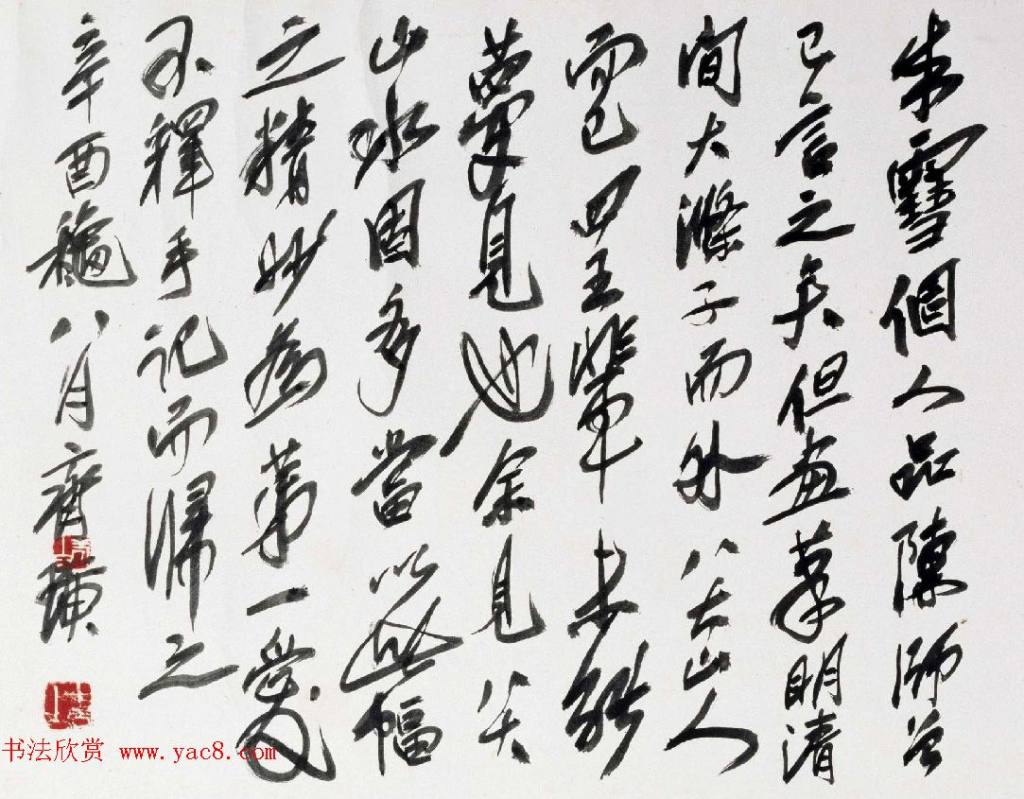 朱雪個人品陳師曾
已言之矣但畫筆明清
間大滌子而外八大山人
而已四王輩未能
夢見也余見八大
山水固多當以此幅
之精妙為第一愛
不釋手記而歸之
辛酉龝八月齊璜
书法欣赏 www.yac8.com